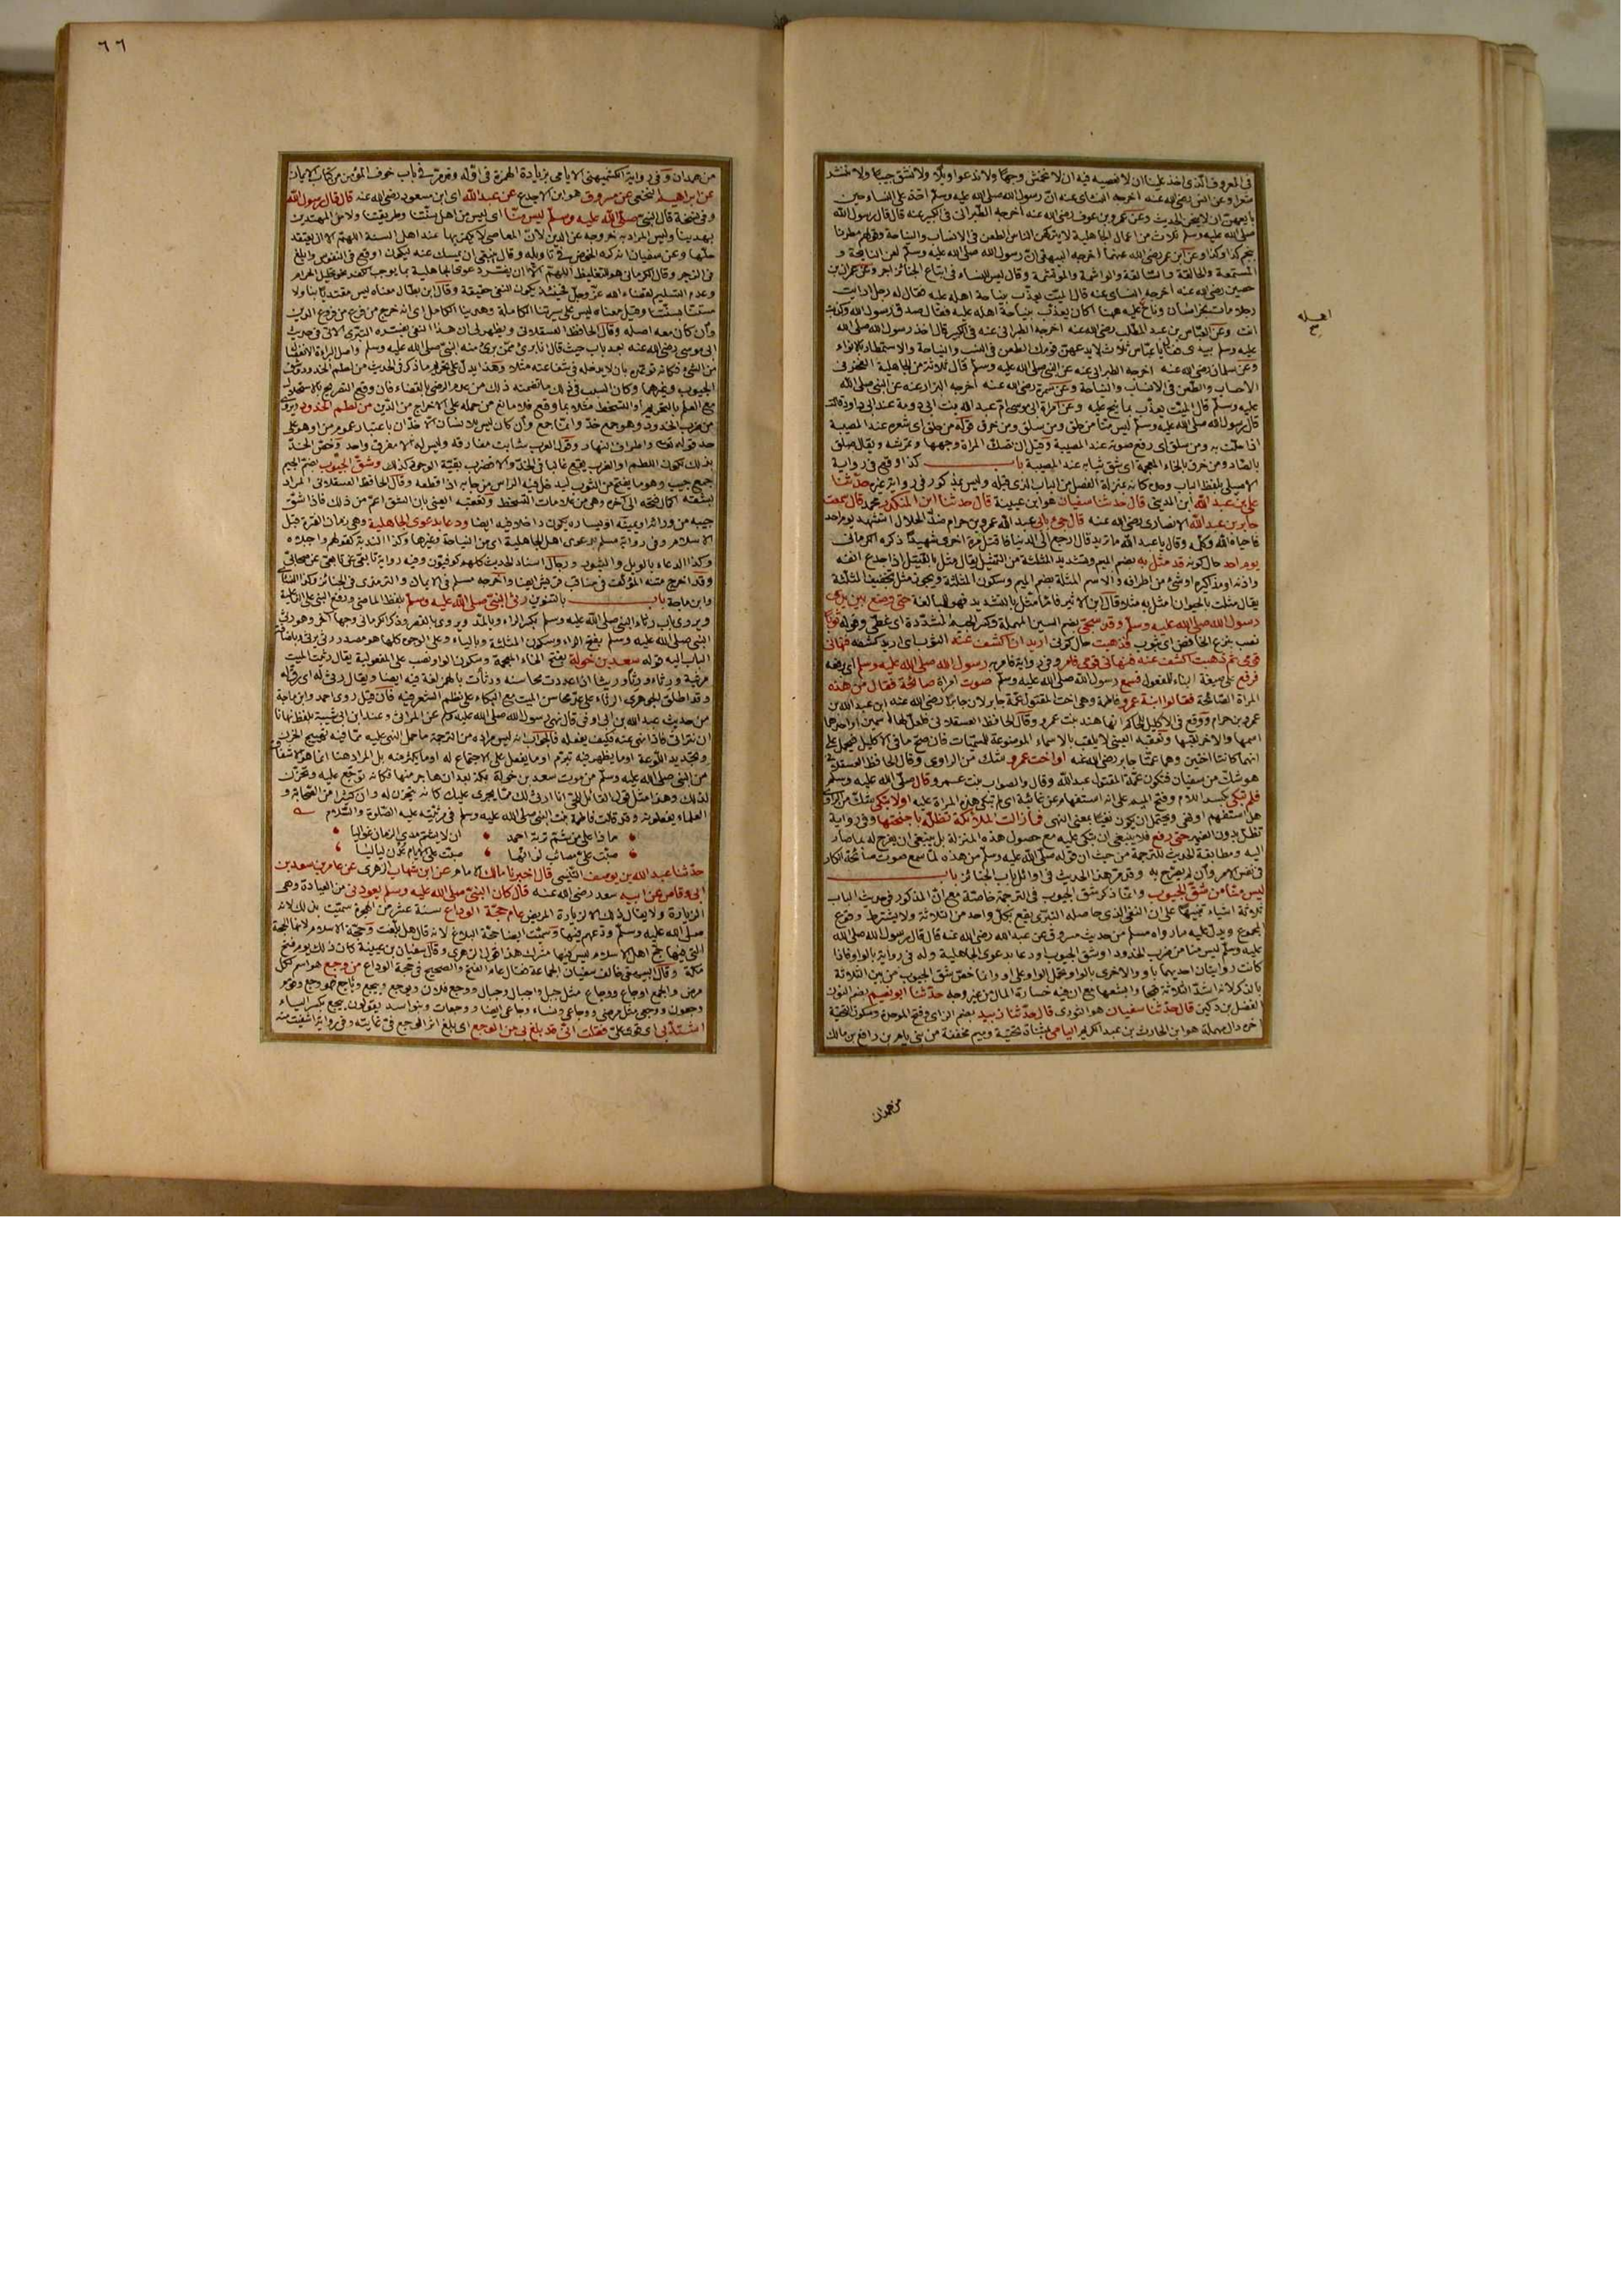 في المعروف الذي اخذ علينا ان لا نعصيه فيه ان لا نخمش وجها ولا ندعوا ويلا ولا نشق جيبا ولا ننشر
شعرا وعن انس رضي الله عنه اخرجه النسائي عنه ان رسول الله صلى الله عليه وسلم اخذ على النساء حين
بايعهن ان لا ينحن الحديث وعن عمرو بن عوف رضي الله عنه اخرجه الطبراني في الكبير عنه قال قال رسول الله
صلى الله عليه وسلم ثلاث من اعمال الجاهلية لا يتركهن الناس الطعن في الانساب والنياحة وقولهم مطرنا
بنجم كذا وكذا وعن ابن عمر رضي الله عنهما اخرجه البيهقي ان رسول الله صلى الله عليه وسلم لعن النائحة و
المستمعة والحالقة والسالقة والواشمة والموتشمة وقال ليس للنساء في اتباع الجنائز اجر وعن عمران بن
حصين رضي الله عنه اخرجه النسائي عنه قال الميت يعذب بنياحة اهله عليه فقال له رجل ارايت
رجلا مات بخراسان وناح عليه ههنا اكان يعذب بنياحة اهله عليه فقال صدق رسول الله وكذبت
انت وعن العباس بن عبد المطلب رضي الله عنه اخرجه الطبراني عنه في الكبير قال اخذ رسول الله صلى الله
عليه وسلم بيدي فقال يا عباس ثلاث لا يدعهن قومك الطعن في النسب والنياحة والاستمطار بالانواء
وعن سلمان رضي الله عنه اخرجه الطبراني عنه عن النبي صلى الله عليه وسلم قال ثلاثة من الجاهلية الفخر في
الاحساب والطعن في الانساب والنياحة وعن سمرة رضي الله عنه اخرجه البزار عنه عن النبي صلى الله
عليه وسلم قال الميت يعذب بما نيح عليه وعن امراة ابي موسى ام عبد الله بنت ابي دومة عند ابي داود قالت
قال رسول الله صلى الله عليه وسلم ليس منا من حلق ومن سلق ومن خرق قوله من حلق اي شعره عند المصيبة
اذا حلت به ومن سلق اي رفع صوته عند المصيبة وقيل ان تصك المراة وجهها وتمرشه ويقال صلق
بالصاد ومن خرق بالخاء المعجمة اي شق ثيابه عند المصيبة باب كذا وقع في رواية
الاصيلي بلفظ الباب وحده كانه بمنزلة الفصل من الباب الذي قبله وليس بمذكور في رواية غيره حدثنا
علي بن عبد الله ابن المديني قال حدثنا سفيان هو ابن عيينة قال حدثنا ابن المنكدر محمد قال سمعت
جابر بن عبد الله الانصاري رضي الله عنه قال جيء بابي عبد الله عمرو بن حرام ضد الحلال استشهد يوم احد
فاحياه الله وكلمه وقال يا عبد الله ما تريد قال ارجع الى الدنيا فاقتل مرة اخرى شهيدا ذكره الكرماني
يوم احد حال كونه قد مثل به بضم الميم وتشديد المثلثة من التمثيل يقال مثل بالقتيل اذا جدع انفه
واذنه او مذاكيره او شيء من اطرافه والاسم المثلة بضم الميم وسكون المثلثة ويجوز مثل بتخفيف المثلثة
يقال مثلت بالحيوان امثل به مثلا وقال ابن الاثير فاما مثل بالتشديد فهو للمبالغة حتى وضع بين يدي
رسول الله صلى الله عليه وسلم وقد سجي بضم السين المهملة وكسر الجيم المشددة اي غطي وقوله ثوبا
نصب بنزع الخافض اي بثوب فذهبت حال كوني اريد ان اكشف عنه الثوب اي اريد كشفه فنهاني
قومي ثم ذهبت اكشف عنه فنهاني قومي فامر وفي رواية فامر به رسول الله صلى الله عليه وسلم اي برفعه
فرفع على صيغة البناء للمفعول فسمع رسول الله صلى الله عليه وسلم صوت امراة صائحة فقال من هذه
المراة الصائحة فقالوا ابنة عمرو فاطمة وهي اخت المقتول عمة جابر لان جابرا رضي الله عنه ابن عبد الله بن
عمرو بن حرام ووقع في الاكليل للحاكم انها هند بنت عمرو وقال الحافظ العسقلاني فلعل لها اسمين او احدهما
اسمها والاخر لقبها وتعقبه العيني لا يلقب بالاسماء الموضوعة للمسميات فان صح ما في الاكليل فيحمل على
انهما كانتا اختين وهما عمتا جابر رضي الله عنه او اخت عمرو شك من الراوي وقال الحافظ العسقلاني
هو شك من سفيان فتكون عمة المقتول عبد الله وقال والصواب بنت عمرو قال صلى الله عليه وسلم
فلم تبكي بكسر اللام وفتح الميم على انه استفهام عن غائبة اي لم تبكي هذه المراة عليه او لا تبكي شك من الراوي
هل استفهم او نهى ويحتمل ان يكون نفيا بمعنى النهي فما زالت الملائكة تظله باجنحتها وفي رواية
تظل بدون الضمير حتى رفع فلا ينبغي ان يبكى عليه مع حصول هذه المنزلة بل ينبغي ان يفرح له بما صار
اليه ومطابقة الحديث للترجمة من حيث ان قوله صلى الله عليه وسلم من هذه لما سمع صوت صائحة انكار
في نفس الامر وان لم يصرح به وقد مر هذا الحديث في اوائل باب الجنائز باب
ليس منا من شق الجيوب وانما ذكر شق الجيوب في الترجمة خاصة مع ان المذكور في حديث الباب
ثلاثة اشياء تنبيها على ان النفي الذي حاصله التبري يقع بكل واحد من الثلاثة ولا يشترط وقوع
المجموع ويدل عليه ما رواه مسلم من حديث مسروق عن عبد الله رضي الله عنه قال قال رسول الله صلى الله
عليه وسلم ليس منا من ضرب الخدود او شق الجيوب او دعا بدعوى الجاهلية وله في رواية بالواو فاذا
كانت روايتان احديهما باو والاخرى بالواو تحمل الواو على او وانما خص شق الجيوب من بين الثلاثة
بالذكر لانه اشد الثلاثة قبحا وابشعها مع ان فيه خسارة المال من غير وجه حدثنا ابو نعيم بضم النون
الفضل بن دكين قال حدثنا سفيان هو الثوري قال حدثنا زبيد بضم الزاي وفتح الموحدة وسكون التحتية
اخره دال مهملة هو ابن الحارث بن عبد الكريم اليامي بمثناة تحتية وميم مخففة من بني يام بن رافع بن مالك
من همدان
اهله
صح
٦٦
من همدان وفي رواية الكشميهني الايامي بزيادة الهمزة في اوله وقد مر في باب خوف المؤمن من كتاب الايمان
عن ابراهيم النخعي عن مسروق هو ابن الاجدع عن عبد الله اي ابن مسعود رضي الله عنه قال قال رسول الله
وفي نسخة قال النبي صلى الله عليه وسلم ليس منا اي ليس من اهل سنتنا وطريقتنا ولا من المهتدين
بهدينا وليس المراد به خروجه عن الدين لان المعاصي لا يكفر بها عند اهل السنة اللهم الا ان يعتقد
حلها وعن سفيان انه كره الخوض في تاويله وقال ينبغي ان يمسك عنه ليكون اوقع في النفوس وابلغ
في الزجر وقال الكرماني هو للتغليظ اللهم الا ان يفسر دعوى الجاهلية بما يوجب الكفر نحو تحليل الحرام
وعدم التسليم لقضاء الله عز وجل فحينئذ يكون النفي حقيقة وقال ابن بطال معناه ليس مقتديا بنا ولا
مستنا بسنتنا وقيل معناه ليس على سيرتنا الكاملة وهدينا الكامل اي انه خرج من فرع من فروع الدين
وان كان معه اصله وقال الحافظ العسقلاني ويظهر لي ان هذا النفي يفسره التبري الاتي في حديث
ابي موسى رضي الله عنه بعد باب حيث قال انا بريء ممن برئ منه النبي صلى الله عليه وسلم واصل البراءة الانفصال
من الشيء فكانه توعده بان لا يدخله في شفاعته مثلا وهذا يدل على تحريم ما ذكر في الحديث من لطم الخدود وشق
الجيوب وغيرهما وكان السبب في ذلك ما تضمنه ذلك من عدم الرضى بالقضاء فان وقع التصريح بالاستحلال
مع العلم بالتحريم او التسخط مثلا بما وقع فلا مانع من حمله على الاخراج من الدين من لطم الخدود ويروى
من ضرب الخدود وهو جمع خد وانما جمع وان كان ليس للانسان الا خدان باعتبار عموم من او هو على
حد قوله تعالى واطراف النهار وقول العرب شابت مفارقه وليس له الا مفرق واحد وخص الخد
بذلك لكون اللطم او الضرب يقع غالبا في الخد والا فضرب بقية الوجه كذلك وشق الجيوب بضم الجيم
جمع جيب وهو ما يفتح من الثوب ليدخل فيه الراس من جابه اذا قطعه وقال الحافظ العسقلاني المراد
بشقه اكمال فتحه الى اخره وهي من علامات التسخط وتعقبه العيني بان الشق اعم من ذلك فاذا شق
جيبه من ورائه او يمينه او يساره يكون داخلا فيه ايضا ودعا بدعوى الجاهلية وهي زمان الفترة قبل
الاسلام وفي رواية مسلم بدعوى اهل الجاهلية اي من النياحة وغيرها وكذا الندبة كقولهم واجبلاه
وكذا الدعاء بالويل والثبور ورجال اسناد الحديث كلهم كوفيون وفيه رواية تابعي عن تابعي عن صحابي
وقد اخرج متنه المؤلف في مناقب قريش ايضا واخرجه مسلم في الايمان والترمذي في الجنائز وكذا النسائي
وابن ماجة باب بالتنوين رثى النبي صلى الله عليه وسلم بلفظ الماضي ورفع النبي على الفاعلية
ويروى باب رثاء النبي صلى الله عليه وسلم بكسر الراء وبالمد ويروى بالقصر وذكر الكرماني وجها اخر وهو رثي
النبي صلى الله عليه وسلم بفتح الراء وسكون المثلثة وبالياء وعلى الوجوه كلها هو مصدر رثى يرثي وباضافة
الباب اليه قوله سعد بن خولة بفتح الخاء المعجمة وسكون الواو نصب على المفعولية يقال رثيت الميت
مرثية ورثاء ورثا ورثيا اذا عددت محاسنه ورثات بالهمز لغة فيه ايضا ويقال رثى له اي رق له
وقد اطلق الجوهري الرثاء على عد محاسن الميت مع البكاء وعلى نظم الشعر فيه فان قيل روى احمد وابن ماجة
من حديث عبد الله بن ابي اوفى قال نهى رسول الله صلى الله عليه وسلم عن المراثي وعند ابن ابي شيبة بلفظ نهانا
ان نتراثى فاذا نهى عنه فكيف يفعله فالجواب انه ليس مراده من الترجمة ما حمل النهي عليه مما فيه تهييج الحزن
وتجديد اللوعة او ما يظهر فيه تبرم او ما يفعل على الاجتماع له او ما يكثر منه بل المراد هنا انما هو الاشفاق
من النبي صلى الله عليه وسلم من موت سعد بن خولة بمكة بعد ان هاجر منها فكانه توجع عليه وتحزن
لذلك وهذا مثل قول القائل للحي انا ارثي لك مما يجري عليك كانه يتحزن له وان كثيرا من الصحابة و
العلماء يفعلونه وقد قالت فاطمة بنت النبي صلى الله عليه وسلم في مرثيته عليه الصلوة والسلام
ماذا على من شم تربة احمد ان لا يشم مدى الزمان غواليا
صبت علي مصائب لو انها صبت على الايام عدن لياليا
حدثنا عبد الله بن يوسف التنيسي قال اخبرنا مالك الامام عن ابن شهاب الزهري عن عامر بن سعد بن
ابي وقاص عن ابيه سعد رضي الله عنه قال كان النبي صلى الله عليه وسلم يعودني من العيادة وهي
الزيارة ولا يقال ذلك الا لزيارة المريض عام حجة الوداع سنة عشر من الهجرة سميت بذلك لانه
صلى الله عليه وسلم ودعهم فيها وسميت ايضا حجة البلاغ لانه قال هل بلغت وحجة الاسلام لانها الحجة
التي فيها حج اهل الاسلام ليس فيها مشرك هذا قول الزهري وقال سفيان بن عيينة كان ذلك يوم فتح
مكة وقال البيهقي خالف سفيان الجماعة فقال عام الفتح والصحيح في حجة الوداع من وجع هو اسم لكل
مرض والجمع اوجاع ووجاع مثل جبل واجبال وجبال ووجع فلان يوجع وييجع وياجع فهو وجع وقوم
وجعون ووجعى مثل مرضى ووجاعى ونساء وجاعى ايضا ووجعات وبنو اسد يقولون ييجع بكسر الياء
اشتد بي اي قوي علي فقلت اني قد بلغ بي من الوجع اي بلغ اثر الوجع في غايته وفي رواية اشفيت منه